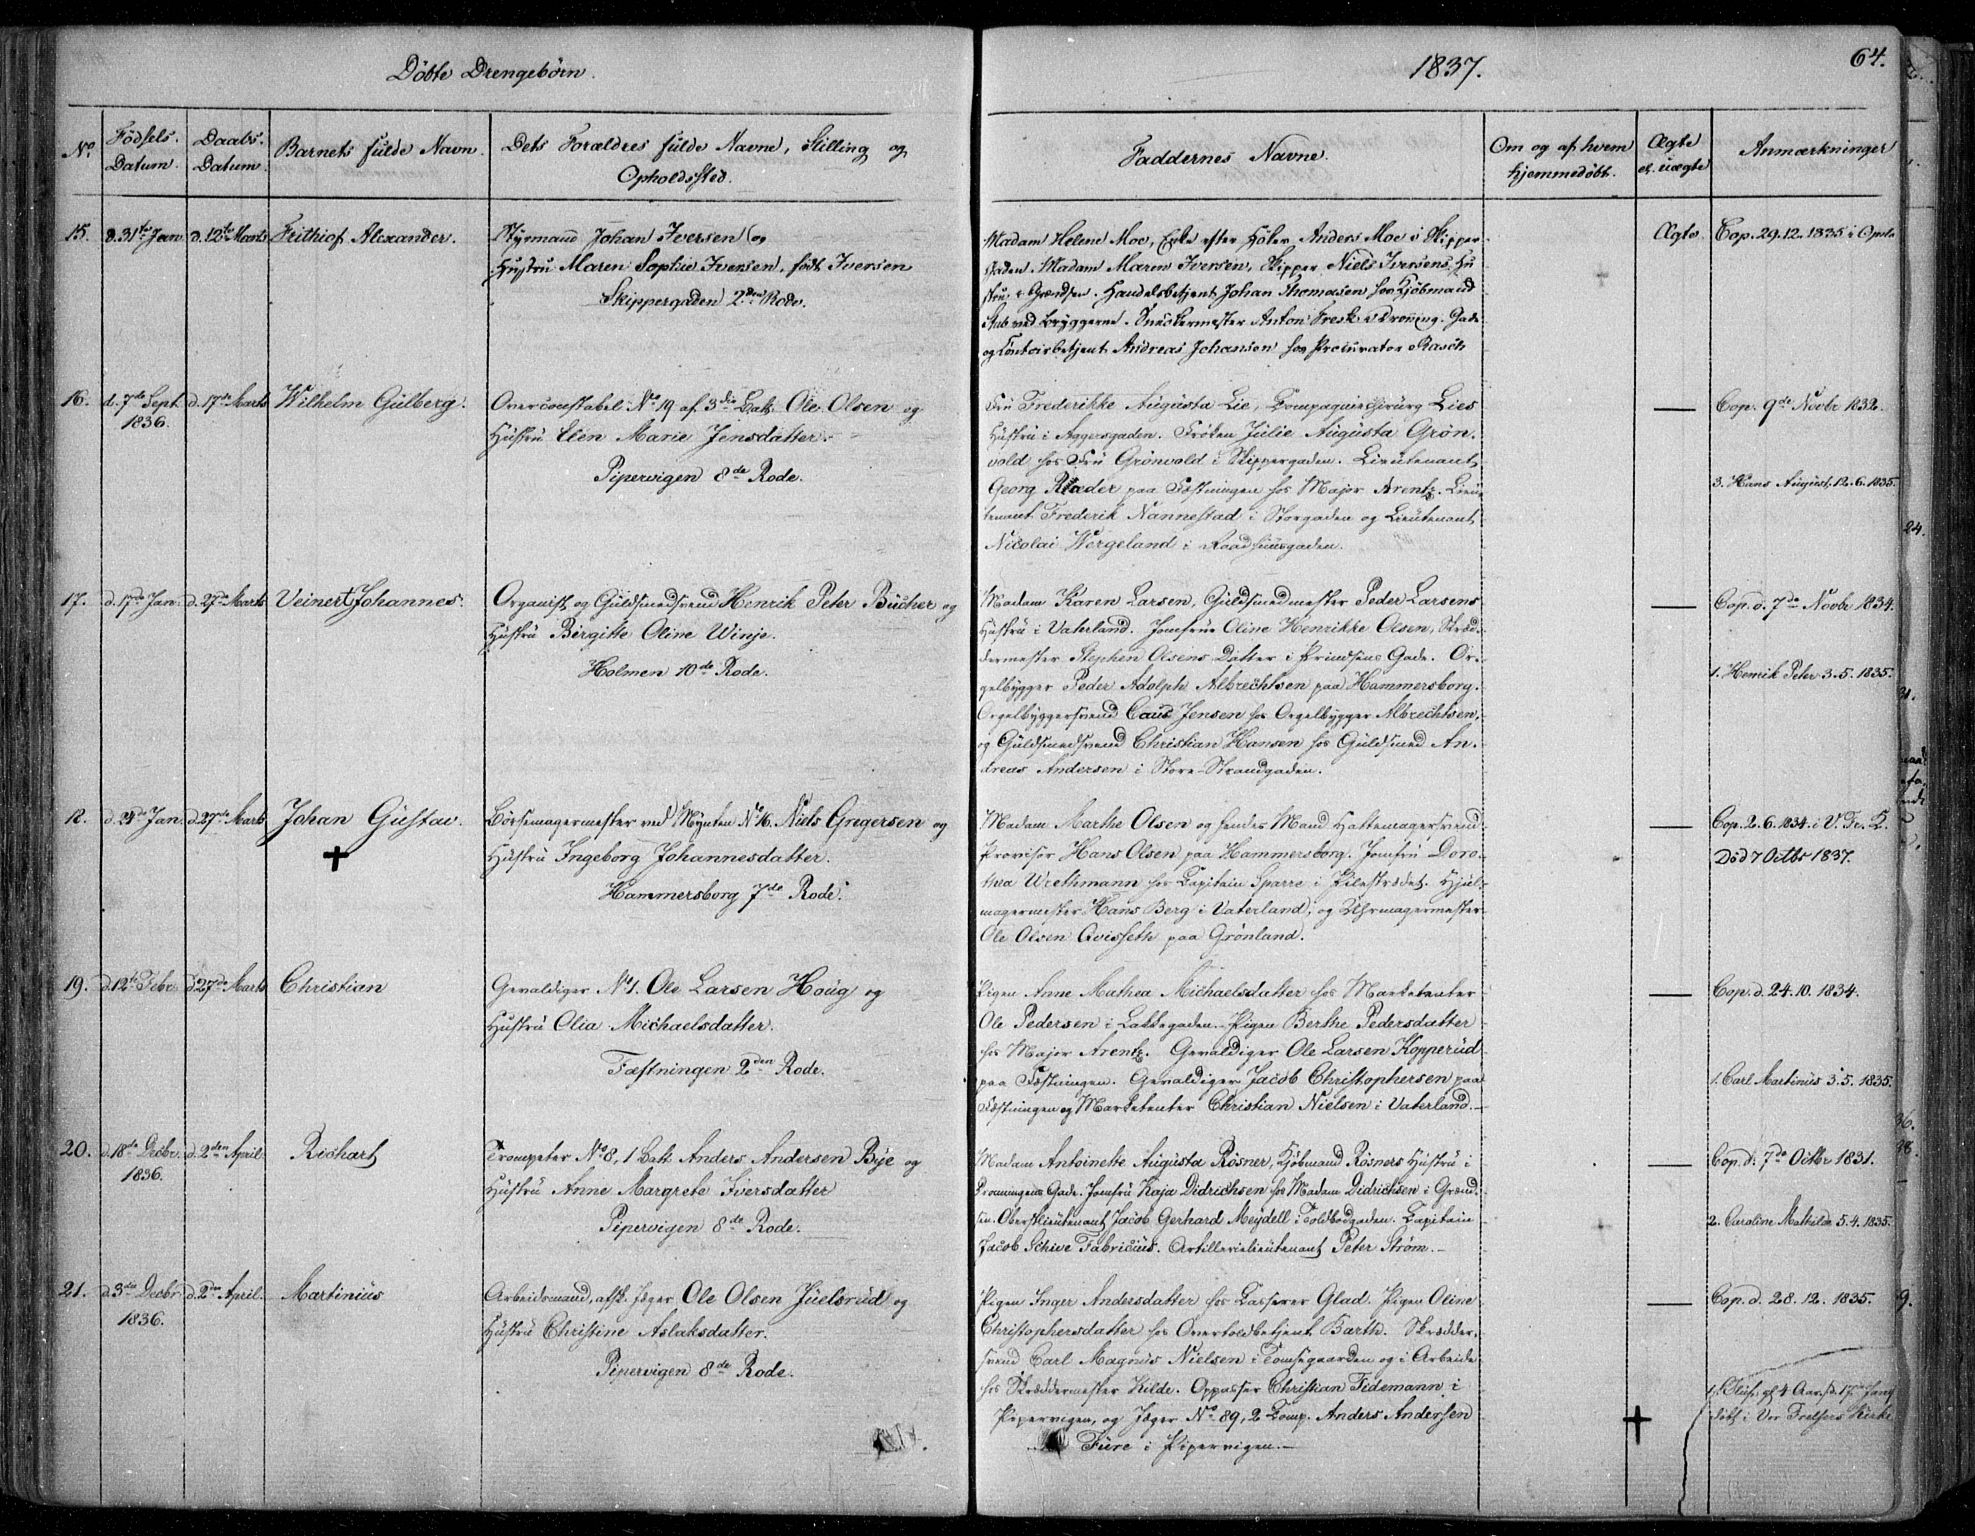 Döbte Drengebörn.
1837.
64.
No.
Födsels-Datum.
Daabs-Datum.
Barnets fulde Navn.
Dets Forældres fulde Navne, Stilling og Opholdssted.
Faddernes Navne.
Om og af hvem hjemmedöbt.
Ægte el. uægte
Anmærkninger
15. d. 31te Jan. d. 12te Marts Frithiof Alexander.
Styrmand Johan Iversen og
Hustru Maren Sophie Iversen, født Iversen
Skippergaden 2den Rode.
Madam Helene Moe, Enke efter Höker Anders Moe i Skipper
gaden. Madam Maren Iversen, Skipper Niels Iversens Hu
stru, i Grændsen. Handelsbetjent Johan Thomasen hos Kjöbmand
Stub ved Bryggerne. Snedkermester Anton Fresk i Dronning. Gade
og Contoirbetjent Andreas Johansen hos Procurator Rasch
Ægte. Cop. 29.12.1835 i Opslo
16. d. 7de Sept. 1836. d. 17de Marts Wilhelm Gulberg.
Overconstabel No 19 af 3die Batt. Ole Olsen og
Hustru Elen Marie Jensdatter.
Pipervigen 8de Rode.
Fru Frederikke Augusta Lie, Compagniechirurg Lies
Hustru i Aggersgaden. Fröken Julie Augusta Grön-
vold hos Fru Grönvold i Skippergaden. Lieutenant
Georg Ræder paa Fæstningen hos Major Arentz. Lieu
tenant Frederik Nannestad i Storgaden og Lieutenant
Nicolai Wergeland i Raadhuusgaden.
— Cop. 9de Novbr 1832.
3. Hans August, 12.6.1835.
17. d. 17de Jan. d. 27de Marts Veinert Johannes.
Organist og Guldsmedsvend Henrik Peter Bucher og
Hustru Birgitte Oline Winje.
Holmen 10de Rode.
Madam Karen Larsen, Guldsmedmester Peder Larsens
Hustru i Vaterland. Jomfrue Oline Henrikke Olsen, Skræd-
dermester Stephen Olsens Datter i Prindsens Gade. Or-
gelbygger Peder Adolph Albrechtsen paa Hammersborg.
Orgelbyggersvend Claus Jensen hos Orgelbygger Albrechtsen,
og Guldsmedsvend Christian Hansen hos Guldsmed An-
dreas Andersen i Store-Strandgaden.
— Cop. d. 7de Novbr 1834.
1. Henrik Peter 3.5.1835.
18. d. 27de Marts Johan Gustav.
Børsemagermester ved Mynten No 16. Niels Gregersen og
Hustru Ingeborg Johannesdatter.
Hammersborg 7de Rode.
Madam Marthe Olsen og hendes Mand Hattemagersvend
Provisor Hans Olsen paa Hammersborg. Jomfru Doro-
thea Wrethmann hos Capitain Sparre i Pilestrædet. Hjul-
magermester Hans Berg i Vaterland, og Uhrmagermester
Ole Olsen Qvisseth paa Grönland.
— Cop. 2.6.1834. i V. Fr. K.
Död 7 Octbr 1837.
19. d. 12te Febr. d. 27de Marts Christian
Gevaldiger No 1. Ole Larsen Houg og
Hustru Olia Michaelsdatter.
Fæstningen 2den Rode.
Pigen Anne Mathea Michaelsdatter hos Marketenter
Ole Pedersen i Lakkegaden. Pigen Berthe Pedersdatter
hos Major Arentz. Gevaldiger Ole Larsen Kopperud
paa Fæstningen. Gevaldiger Jacob Christophersen paa
Fæstningen og Marketenter Christian Nielsen i Vaterland.
— Cop. d. 24.10.1834.
1. Carl Martinius 3.5.1835.
20. d. 18de Decbr. 1836. d. 2den April Richart
Trompeter No 8, 1 Batt. Anders Andersen Bye og
Hustru Anne Margrete Iversdatter
Pipervigen 8de Rode.
Madam Antoinette Augusta Rösner, Kjöbmand Rösners Hustru i
Dronningens Gade. Jomfru Kaja Didrichsen hos Madam Didrichsen i Grænd-
sen. Oberstlieutenant Jacob Gerhard Meydell i Toldbodgaden. Capitain
Jacob Schive Fabricius. Artillerielieutenant Peter Ström.
— Cop. d. 7de Octbr 1831.
2. Caroline Mathilde 5.4.1835.
21. d. 3die Decbr. 1836. d. 2den April. Martinius
Arbeidsmand, afsk. Jæger Ole Olsen Juelsrud og
Hustru Christine Aslaksdatter.
Pipervigen 8de Rode.
Pigen Inger Andersdatter hos Casserer Glad. Pigen Oline
Christophersdatter hos Overtoldbetjent Barth. Skrædder-
svend Carl Magnus Nielsen i Tomtegaarden og i Arbeide
hos Skræddermester Kilde. Oppasser Christian Tidemann i
Pipervigen, og Jæger No 89, 2 Comp. Anders Andersen
Fure i Pipervigen.
— Cop. d. 28.12.1835.
döbt i Vor Frelsers Kirke